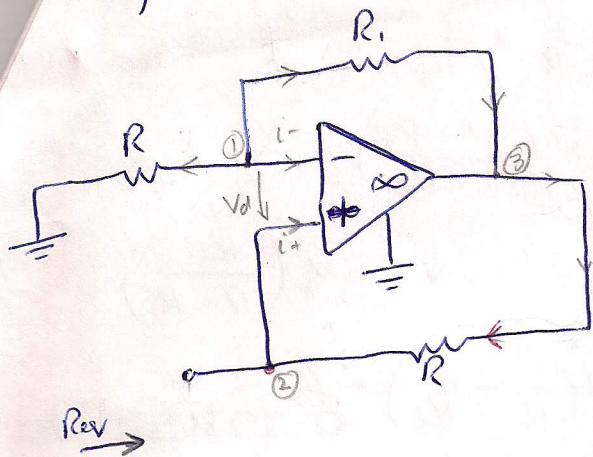 R1
R
①
i-
-
∞
③
Vd
+
i+
R
②
Rev